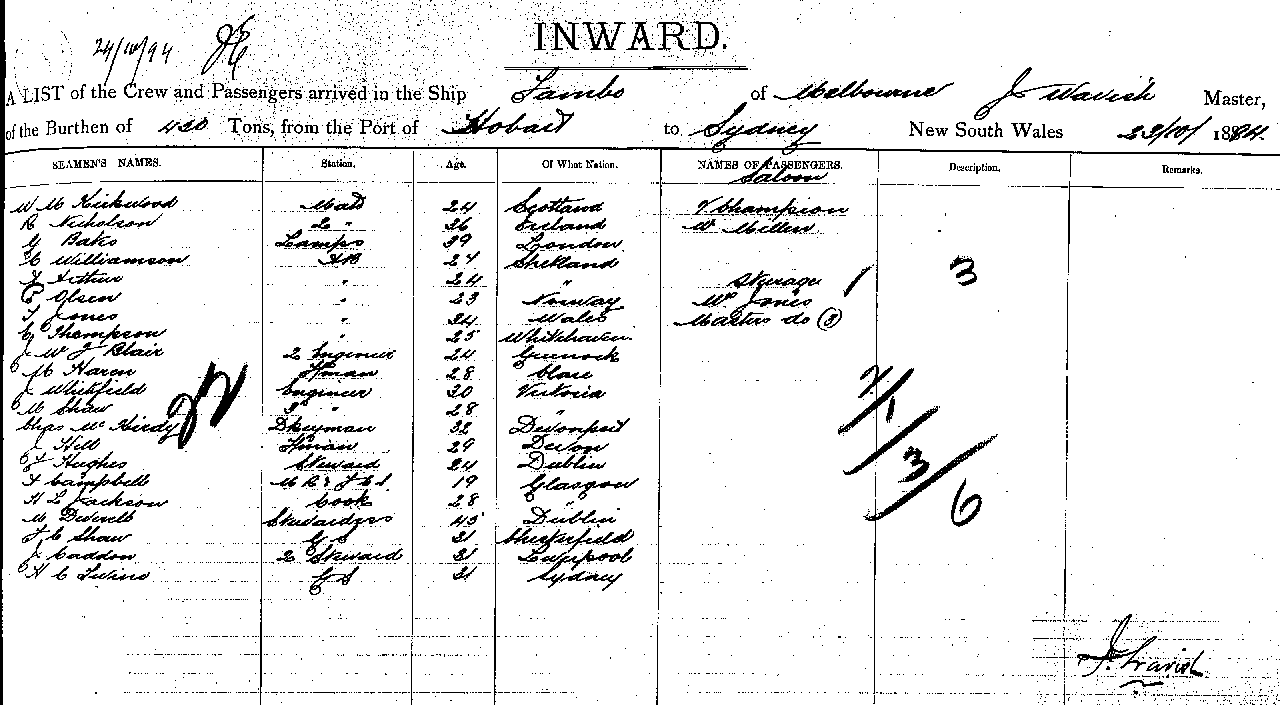 24/10/94
INWARD.
A LIST of the Crew and Passengers arrived in the Ship Tambo of Melbourne J Wavish Master,
of the Burthen of 420 Tons, from the Port of Hobart to Sydney New South Wales 23/10/ 1894.
SEAMEN'S NAMES. Station. Age. Of What Nation. NAMES OF PASSENGERS. Description. Remarks.
Saloon
W M Kirkwood Mate 24 Scotland Champion
R Nicholson 2 " 26 Ireland W Millen
G Bates Lamps 39 London
Williamson AB 27 Shetland
J Arthur " 24 " Steerage 3
Olsen " 23 Norway Mr Jones
T Jones " 24 Wales Masters do (3)
G Thompson " 25 Whitehaven
J W J Blair 2 Engineer 24 Greenock
M Haren Fman 28 Clare
J Whitfield Engineer 30 Victoria
M Shaw 3 " 28 "
Chas Mc Hirdy Dkeyman 32 Devonport
J Hill Fman 29 Devon
J Hughes Steward 24 Dublin
F Campbell 19 Glasgow
H L Jackson Cook 28 "
M Deverell Stewardess 45 Dublin
J C Shaw G S 21 Chesterfield
J Caddon 2 Steward 21 Liverpool
H C Levins G S 21 Sydney
22
2/1/3/6
J. Wavish